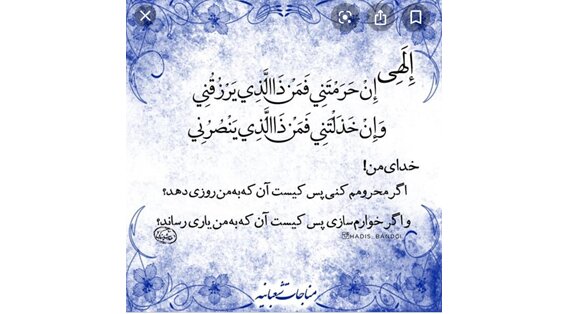 إِلَهِي
إِنْ حَرَمْتَنِي فَمَنْ ذَا الَّذِي يَرْزُقُنِي
وَإِنْ خَذَلْتَنِي فَمَنْ ذَا الَّذِي يَنْصُرُنِي
خدای من!
اگر محرومم کنی پس کیست آن که به من روزی دهد؟
و اگر خوارم سازی پس کیست آن که به من یاری رساند؟
HADIS_BANDGI
مناجات شعبانیه